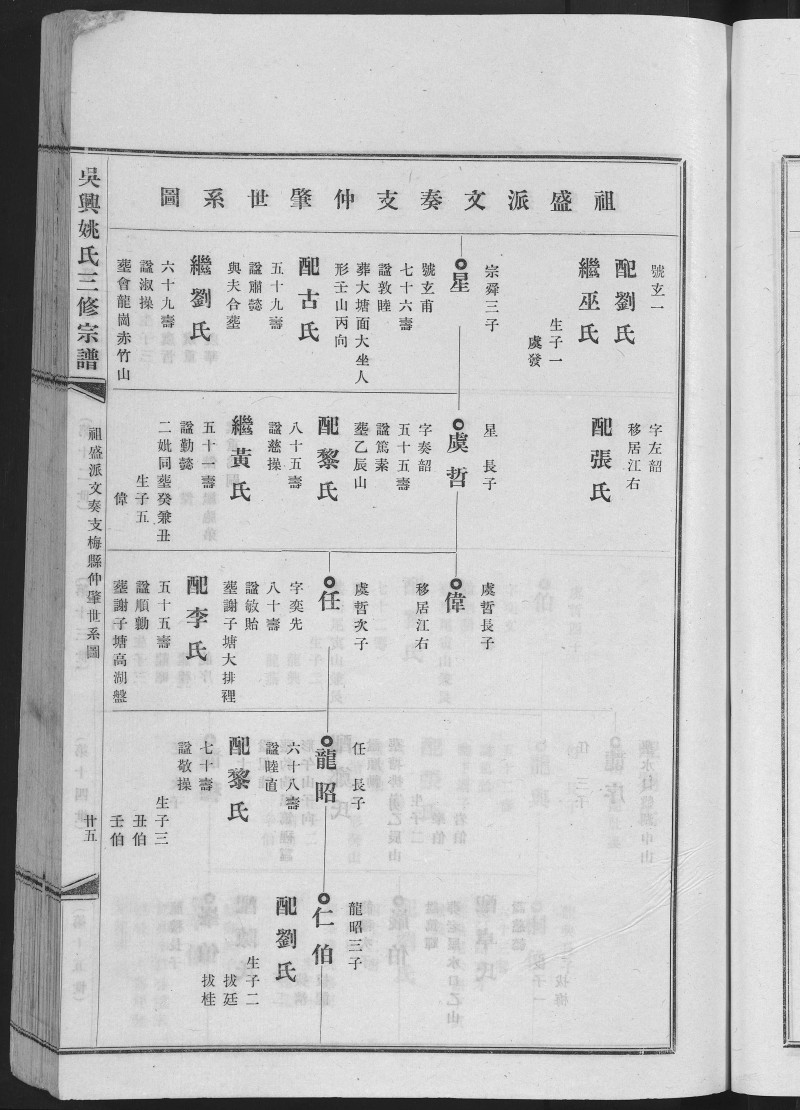 祖盛派文奏支仲肇世系圖
號玄一
配劉氏
繼巫氏
生子一
虞發
宗舜三子
星
號玄甫
七十六壽
諡敦睦
葬大塘面大坐人
形壬山丙向
配古氏
五十九壽
諡肅懿
與夫合塟
繼劉氏
六十九壽
諡淑操
塟會龍崗赤竹山
字左韶
移居江右
配張氏
星 長子
虞哲
字奏韶
五十五壽
諡篤素
塟乙辰山
配黎氏
八十五壽
諡慈操
繼黃氏
五十一壽
諡勤懿
二妣同塟癸兼丑
生子五
偉
虞哲長子
偉
移居江右
虞哲次子
任
字奕先
八十壽
諡敏貽
塟謝子塘大排裡
配李氏
五十五壽
諡順勤
塟謝子塘高湖盤
任 長子
龍昭
六十八壽
諡睦直
配黎氏
七十壽
諡敬操
生子三
丑伯
壬伯
龍昭三子
仁伯
配劉氏
生子二
拔廷
拔桂
吳興姚氏三修宗譜
祖盛派文奏支梅縣仲肇世系圖
廿五